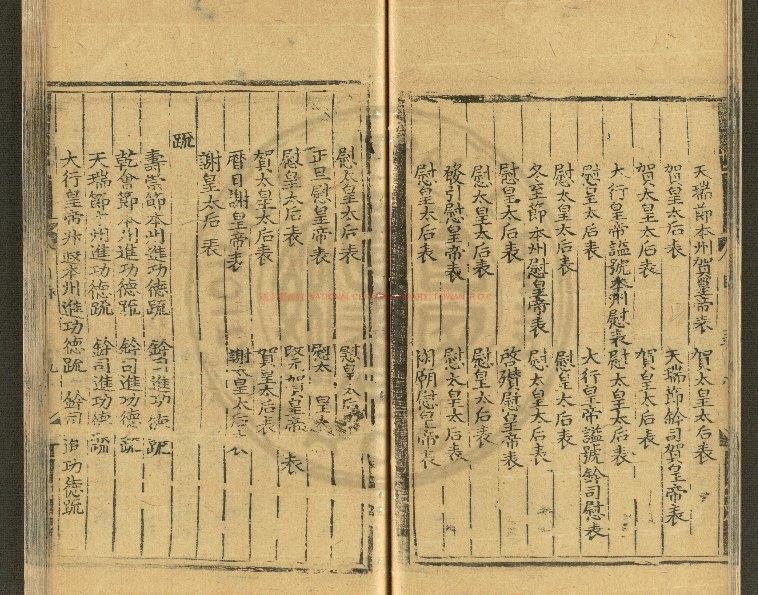 天瑞節本州賀皇帝表 賀太皇太后表
賀皇太后表 天瑞節鈐司賀皇帝表
賀太皇太后表 賀皇太后表
大行皇帝謚號本州慰表 慰太皇太后表
慰皇太后表 大行皇帝謚號鈐司慰表
慰太皇太后表 慰皇太后表
冬至節本州慰皇帝表 慰太皇太后表
慰皇太后表 啓殯慰皇帝表
慰太皇太后表 慰皇太后表
發引慰皇帝表 慰太皇太后表
慰皇太后表 祔廟慰皇帝表
慰太皇太后表 慰皇太后
正旦慰皇帝表 慰太皇太
慰皇太后表 賀皇帝表
賀太皇太后表 賀皇太后表
曆日謝皇帝表 謝太皇太后
謝皇太后表
疏
壽崇節本州進功德疏 鈐司進功德疏
乾會節本州進功德疏 鈐司進功德疏
天瑞節本州進功德疏 鈐司進功德疏
大行皇帝升遐本州進功德疏 鈐司進功德疏
NATIONAL CENTRAL LIBRARY, TAIWAN, R.O.C.